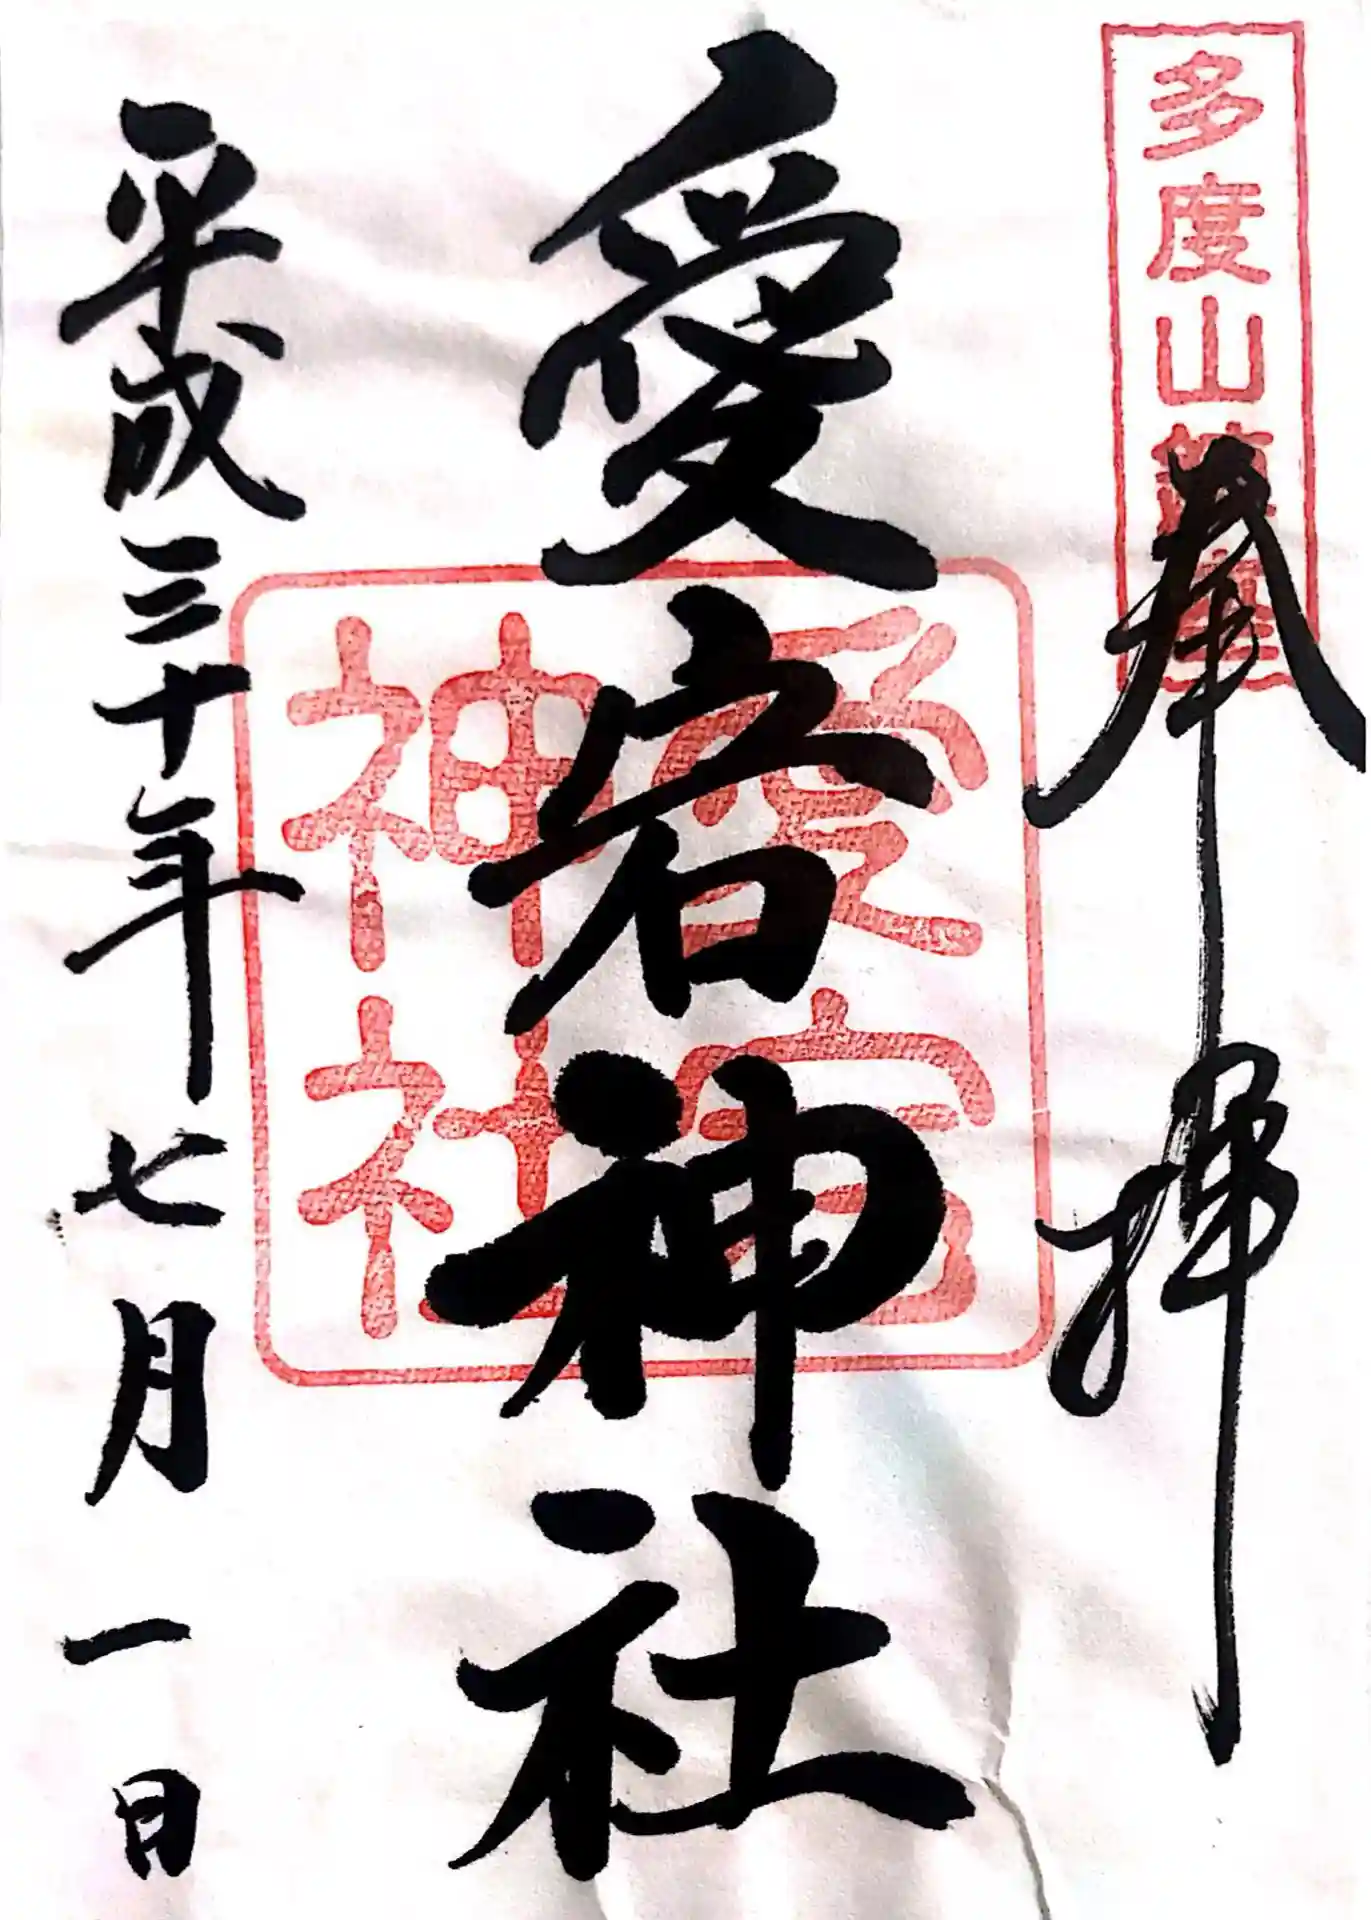 多度山鎮座
奉拝
愛宕神社
愛宕
神社
平成三十年七月一日